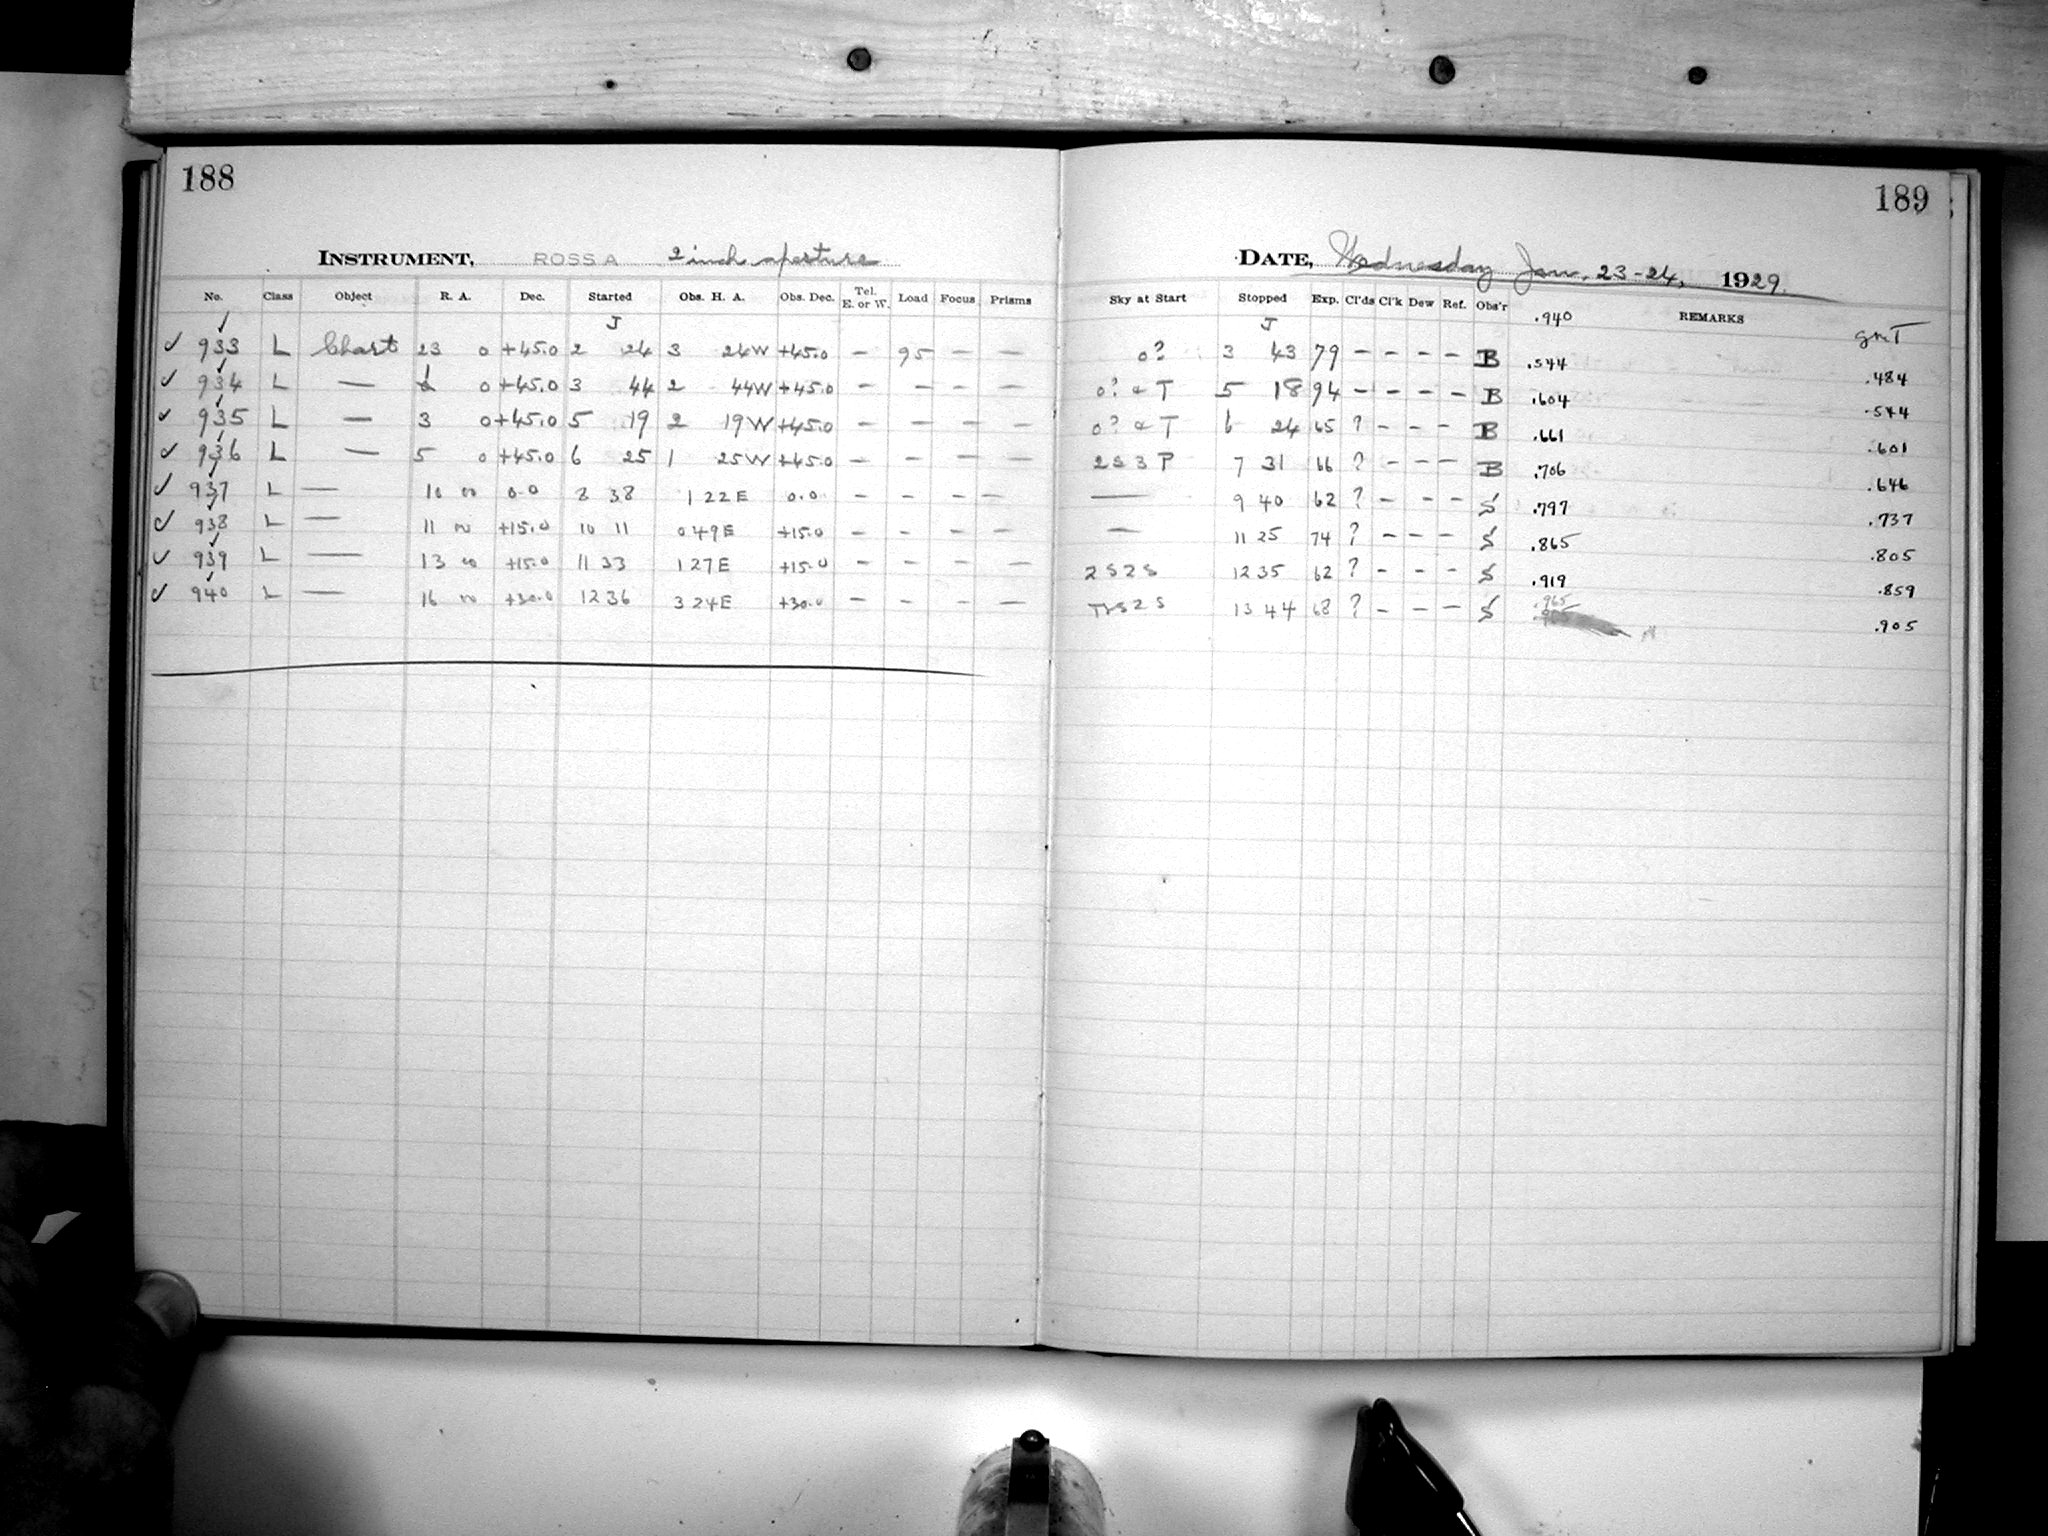 188
INSTRUMENT, ROSS A 2 inch aperture
No. Class Object R. A. Dec. Started Obs. H. A. Obs. Dec. Tel. E. or W. Load Focus Prisms
J
✓ 933 L Chart 23 0 +45.0 2 24 3 24W +45.0 — 95 — —
✓ 934 L — 1 0 +45.0 3 44 2 44W +45.0 — — — —
✓ 935 L — 3 0 +45.0 5 19 2 19W +45.0 — — — —
✓ 936 L — 5 0 +45.0 6 25 1 25W +45.0 — — — —
✓ 937 L — 10 00 0.0 8 38 1 22E 0.0 — — — —
✓ 938 L — 11 00 +15.0 10 11 0 49E +15.0 — — — —
✓ 939 L — 13 00 +15.0 11 33 1 27E +15.0 — — — —
✓ 940 L — 16 00 +30.0 12 36 3 24E +30.0 — — — —
189
DATE, Wednesday Jan. 23-24, 1929.
Sky at Start Stopped Exp. Cl'ds Cl'k Dew Ref. Obs'r REMARKS
J .940 GMT
0? 3 43 79 — — — — B .544 .484
0? & T 5 18 94 — — — — B .604 .544
0? & T 6 24 65 ? — — — B .661 .601
2 S 3 P 7 31 66 ? — — — B .706 .646
— 9 40 62 ? — — — S .797 .737
— 11 25 74 ? — — — S .865 .805
2 S 2 S 12 35 62 ? — — — S .919 .859
S 2 S 13 44 68 ? — — — S .965 .905